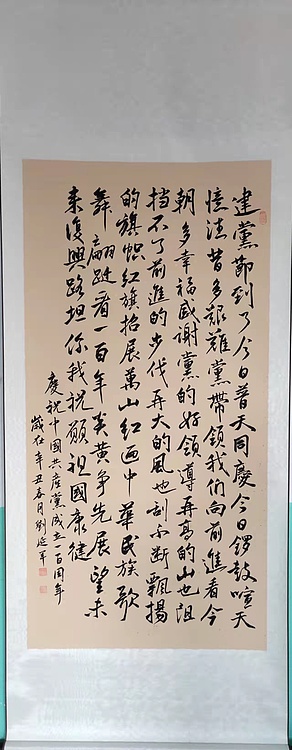 建黨節到了今日普天同慶今日鑼鼓喧天
憶往昔多艱難黨帶領我们向前進看今
朝多幸福感謝黨的好領導再高的山也阻
挡不了前進的步伐再大的風也刮不断飄揚
的旗幟红旗招展萬山红画中華民族歌
舞翩跹看一百年炎黄争先展望未
来復興路坦你我祝願祖國康健
慶祝中國共産黨成立一百周年
歲在辛丑春月劉延军